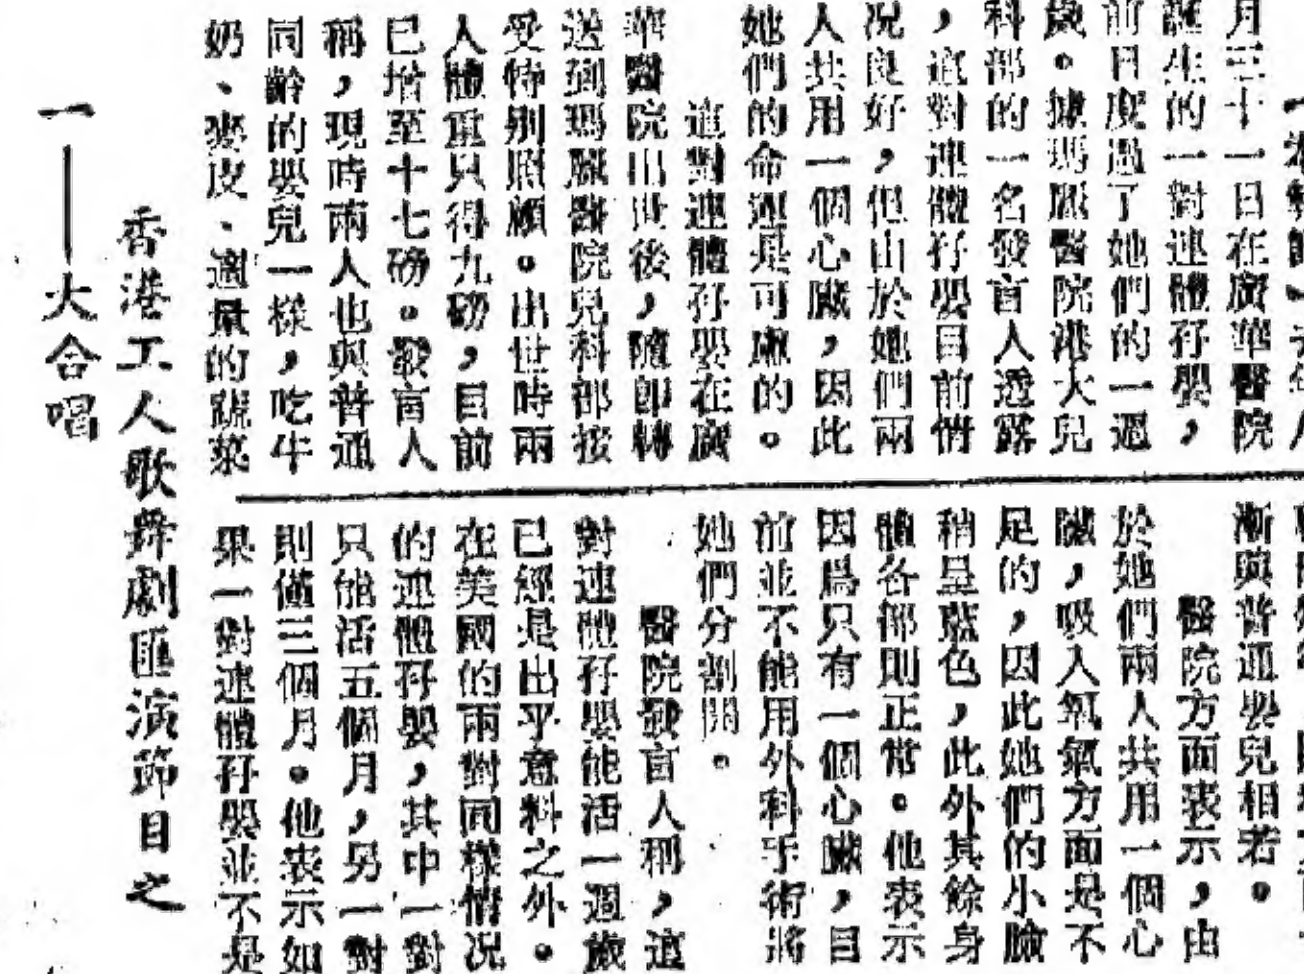 月三十一日在廣華醫院
誕生的一對連體孖嬰，
前日度過了她們的一週
歲。據瑪麗醫院港大兒
科部的一名發言人透露
，這對連體孖嬰目前情
况良好，但由於她們兩
人共用一個心臟，因此
她們的命運是可慮的。
這對連體孖嬰在廣
華醫院出世後，隨即轉
送到瑪麗醫院兒科部接
受特别照顧。出世時兩
人體重只得九磅，目前
已增至十七磅。發言人
稱，現時兩人也與普通
同齡的嬰兒一樣，吃牛
奶、麥皮、適量的蔬菜
漸與普通嬰兒相若。
醫院方面表示，由
於她們兩人共用一個心
臟，吸入氧氣方面是不
足的，因此她們的小臉
稍呈藍色，此外其餘身
體各部則正常。他表示
因爲只有一個心臟，目
前並不能用外科手術將
她們分割開。
醫院發言人稱，這
對連體孖嬰能活一週歲
已經是出乎意料之外。
在美國的兩對同樣情况
的連體孖嬰，其中一對
只能活五個月，另一對
則僅三個月。他表示如
果一對連體孖嬰並不是
香港工人歌舞劇匯演節目之
一——大合唱